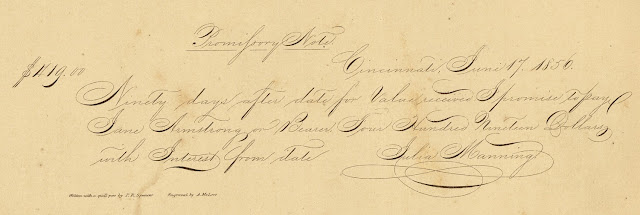 Promissory Note.
Cincinnati, June 17. 1856.
$419.00
Ninety days after date for Value received I promise to pay
Jane Armstrong or Bearer Four Hundred Nineteen Dollars
with Interest from date Julia Manning
Written with a quill pen by P. R. Spencer Engraved by A. McLees